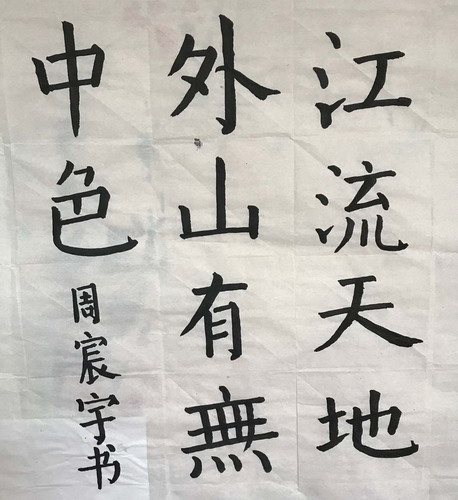 江流天地
外山有無
中色
周宸宇书